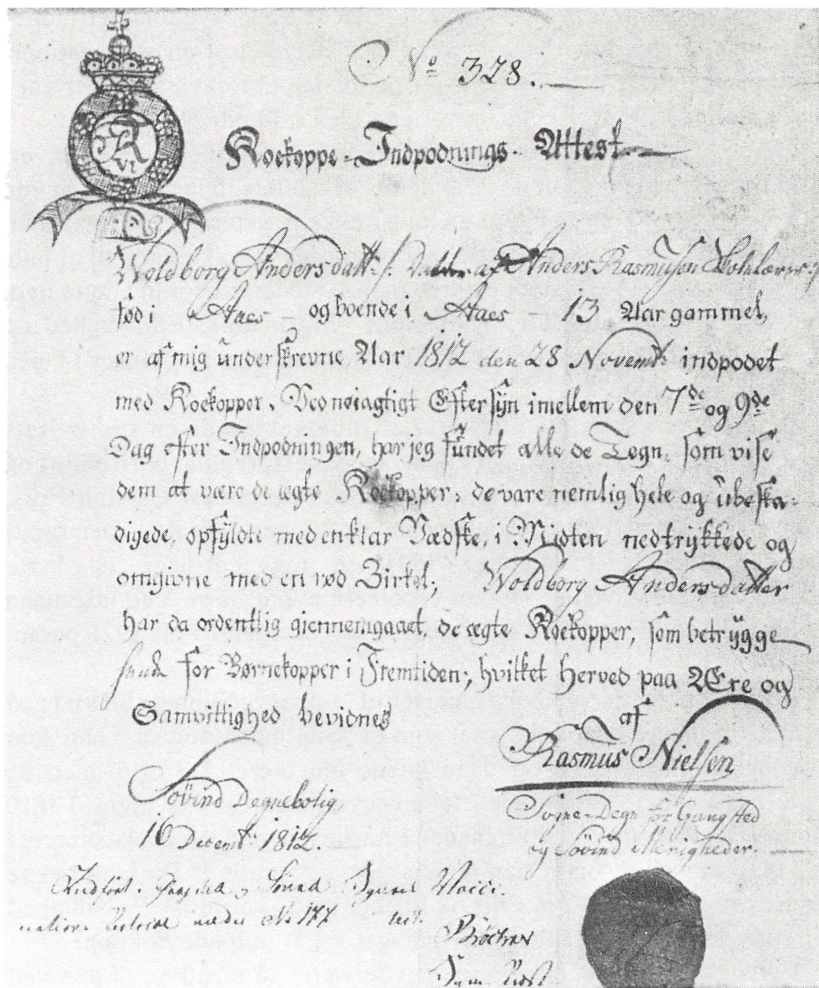 No 328.
Koekoppe-Indpodnings-Attest
Woldborg Andersdatt: /: Datter af Anders Rasmusen
fød i Aaes — og boende i Aaes — 13 Aar gammel,
er af mig underskrevne Aar 1812 den 28 Novembr indpodet
med Koekopper. Ved nøiagtigt Eftersyn imellem den 7de og 9de
Dag efter Indpodningen, har jeg fundet alle de Tegn, som vise
dem at være de ægte Koekopper; de vare nemlig hele og ubeska-
digede, opfyldte med en klar Vædske, i Midten nedtrykkede og
omgivne med en rød Zirkel; Woldborg Andersdatter
har da ordentlig giennemgaaet de ægte Koekopper, som betrygge
for Børnekopper i Fremtiden; hvilket herved paa Ære og
Samvittighed bevidnes
af
Rasmus Nielsen
Søvind Degnebolig
16 Decembr 1812.
Sogne-Degn for Gangsted
og Søvind Menigheder.
Indført i Søvind Sognes Vacci-
nations under No 177